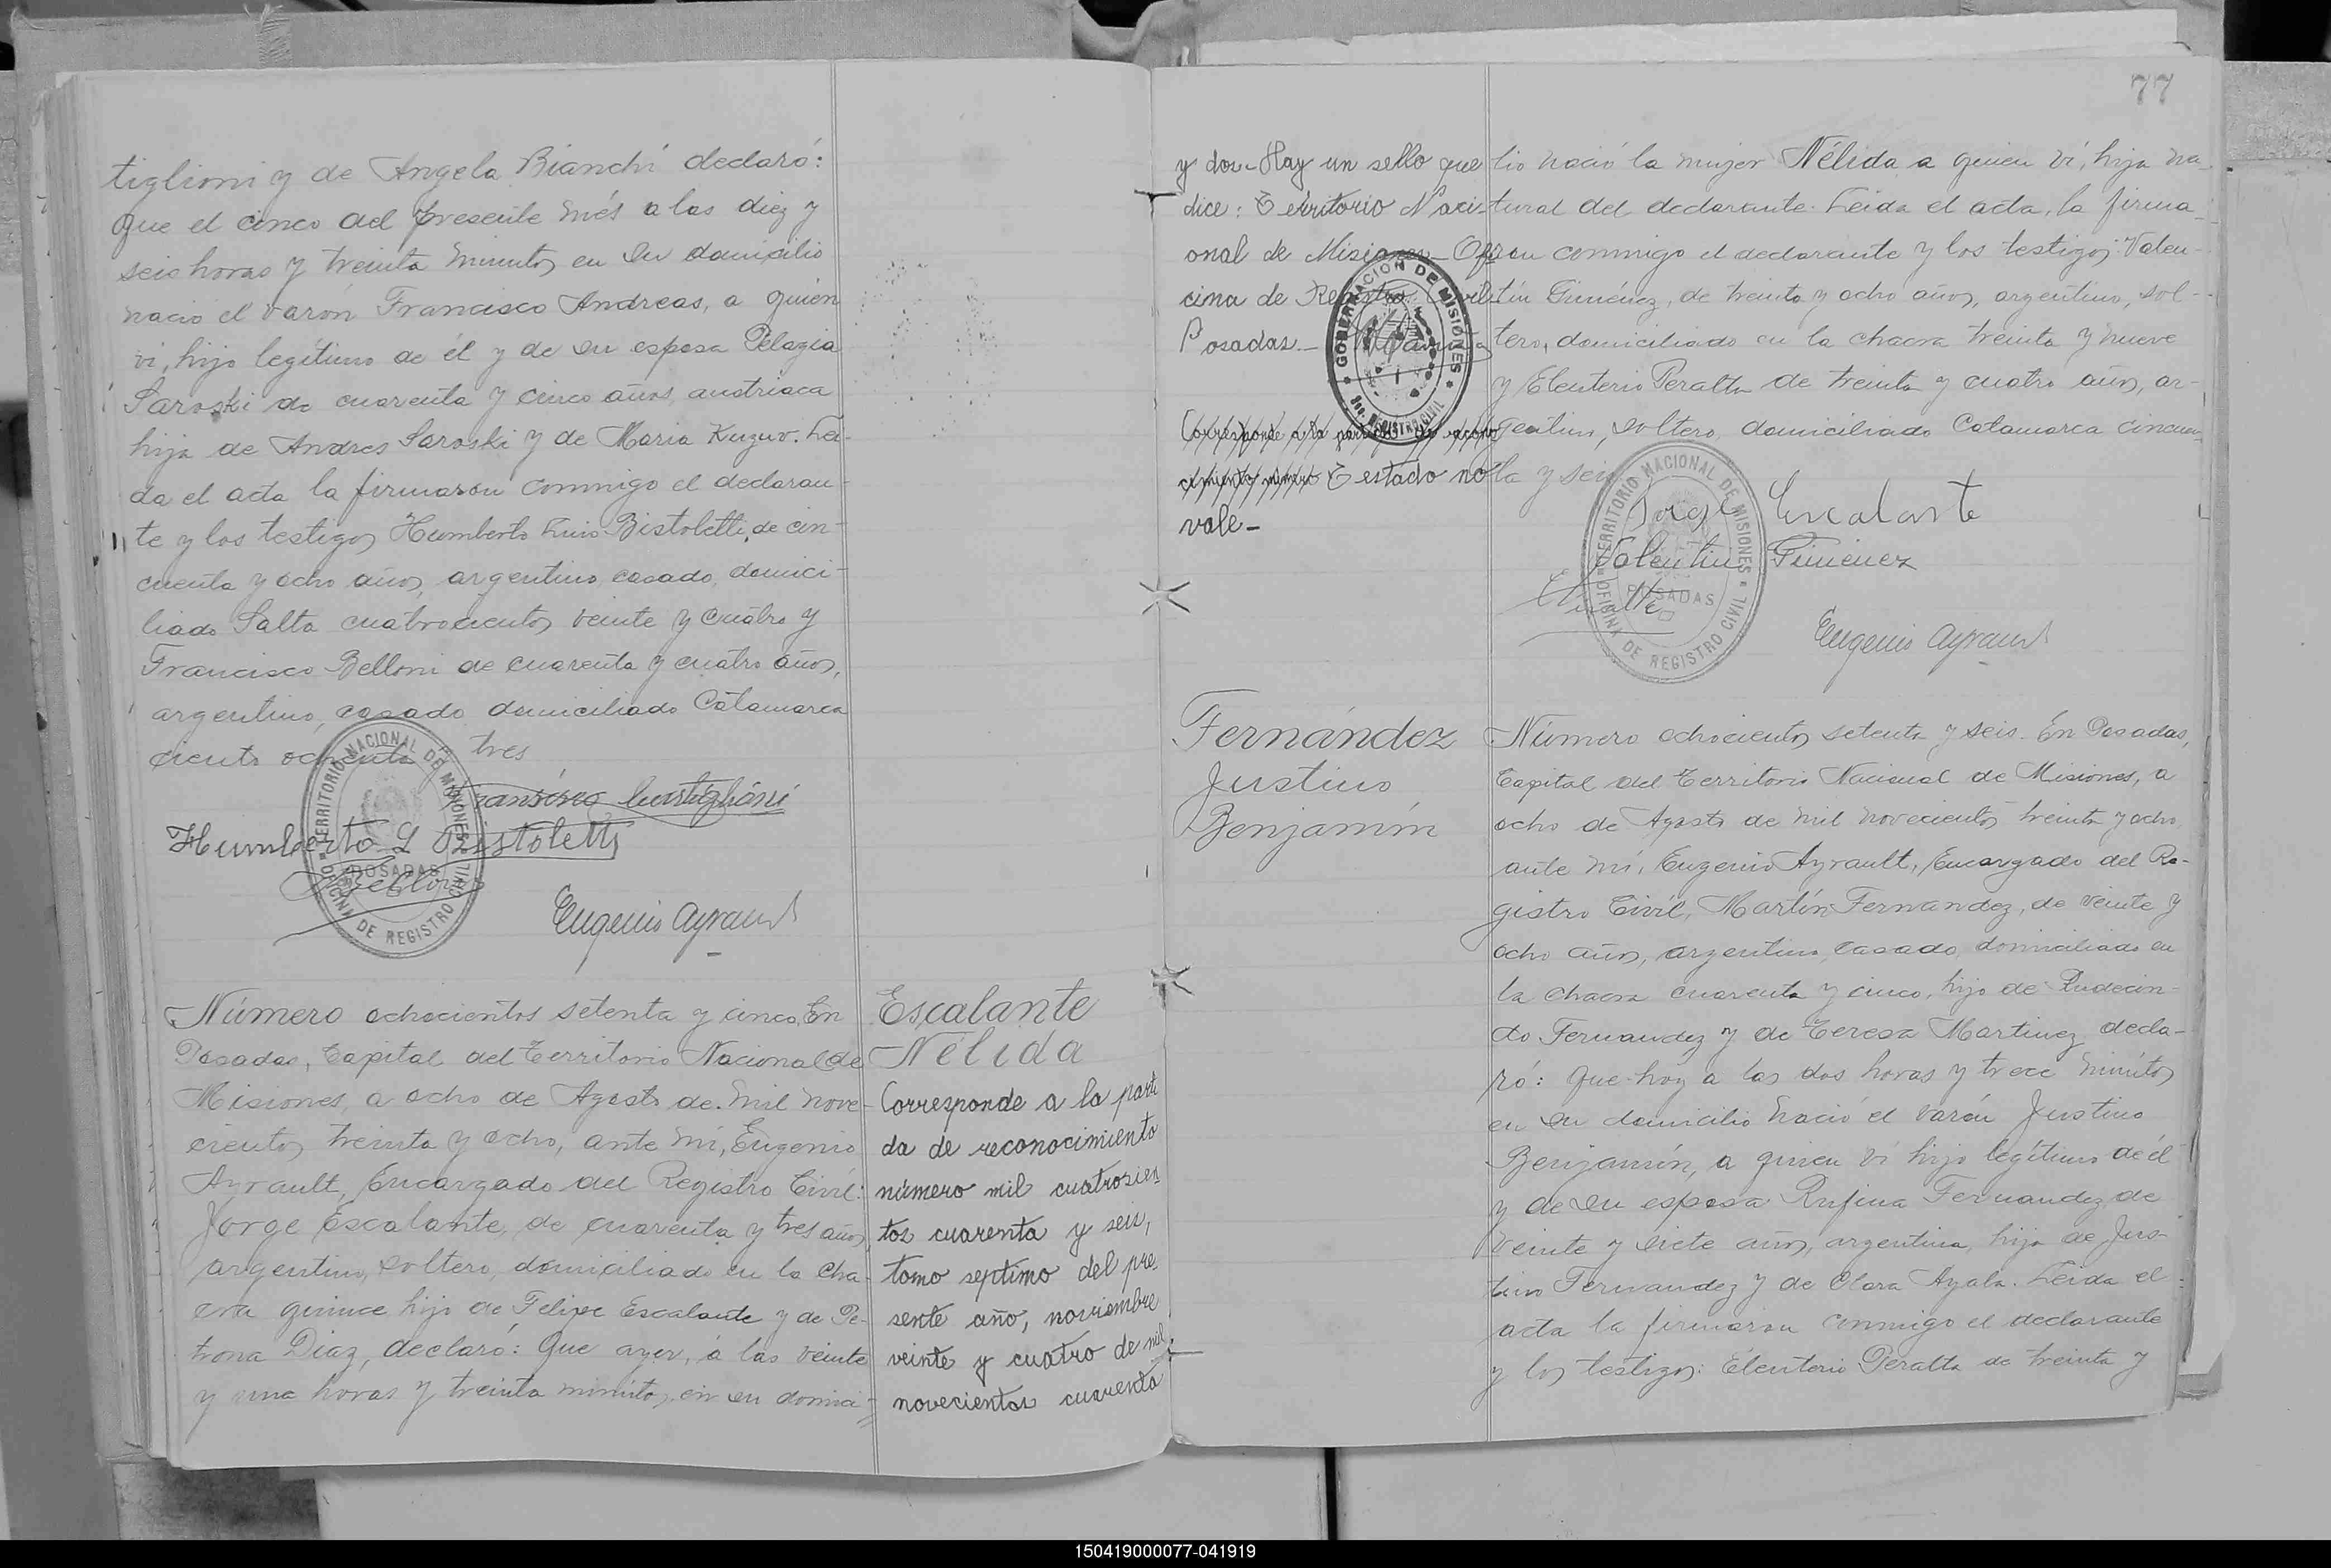 tiglioni y de Angela Bianchi declaró:
Que el cinco del presente més a las diez y
seis horas y treinta minutos en su domicilio
nació el varón Francisco Andreas, a quien
vi, hijo legítimo de él y de su esposa Pelagia
Saroski de cuarenta y cinco años, austriaca
hija de Andres Saroski y de Maria Kuzuv. Leí-
da el acta la firmaron conmigo el declaran-
te y los testigos Humberto Luis Bistoletti, de cin-
cuenta y ocho años, argentino, casado, domici-
liado Salta cuatrocientos veinte y cuatro y
Francisco Belloni de cuarenta y cuatro años,
argentino, casado domiciliado Catamarca
ciento ochenta y tres
TERRITORIO NACIONAL DE MISIONES
POSADAS
OFICINA DE REGISTRO CIVIL
Humberto L Bistoletti
Eugenio Ayrault
Número ochocientos setenta y cinco. En
Posadas, Capital del Territorio Nacional de
Misiones, a ocho de Agosto de mil nove-
cientos treinta y ocho, ante mi, Eugenio
Ayrault, Encargado del Registro Civil:
Jorge Escalante, de cuarenta y tres años
argentino, soltero, domiciliado en la cha-
cra quince hijo de Felipe Escalante y de Pe-
trona Diaz, declaró: Que ayer, a las veinte
y una horas y treinta minutos, en su domici-
Escalante
Nélida
Corresponde a la parti
da de reconocimiento
número mil cuatrosien
tos cuarenta y seis,
tomo septimo del pre-
sente año, noviembre
veinte y cuatro de mil
novecientos cuarenta
77
y dos - Hay un sello que
dice: Territorio Naci-
onal de Misiones - Ofi-
cina de Registro Civil
Posadas. -
GOBERNACION DE MISIONES
REGISTRO CIVIL
Corresponde a la partida de recono
cimiento número Testado no
vale -
lio nació la mujer Nélida a quien ví, hija na-
tural del declarante. Leida el acta, la firma-
ron conmigo el declarante y los testigos: Valen-
tín Giménez, de treinta y ocho años, argentino, sol-
tero, domiciliado en la chacra treinta y nueve
y Eleuterio Peralta de treinta y cuatro años, ar-
gentino, soltero, domiciliado Catamarca cincuen-
ta y seis
TERRITORIO NACIONAL DE MISIONES
POSADAS
OFICINA DE REGISTRO CIVIL
Jorge Escalante
Valentin Gimenez
Eugenio Ayrault
Fernández
Justino
Benjamín
Número ochocientos setenta y seis. En Posadas,
Capital del Territorio Nacional de Misiones, a
ocho de Agosto de mil novecientos treinta y ocho,
ante mí, Eugenio Ayrault, Encargado del Re-
gistro Civil, Martín Fernandez, de veinte y
ocho años, argentino, casado, domiciliado en
la chacra cuarenta y cinco, hijo de Rudecin-
do Fernandez y de Teresa Martinez, decla-
ró: Que hoy a las dos horas y trece minutos
en su domicilio nació el varón Justino
Benjamín, a quien ví hijo legítimo de él
y de su esposa Rufina Fernandez de
veinte y siete años, argentina, hija de Jus-
tino Fernandez y de Clara Ayala. Leida el
acta la firmaron conmigo el declarante
y los testigos: Eleuterio Peralta de treinta y
150419000077-041919